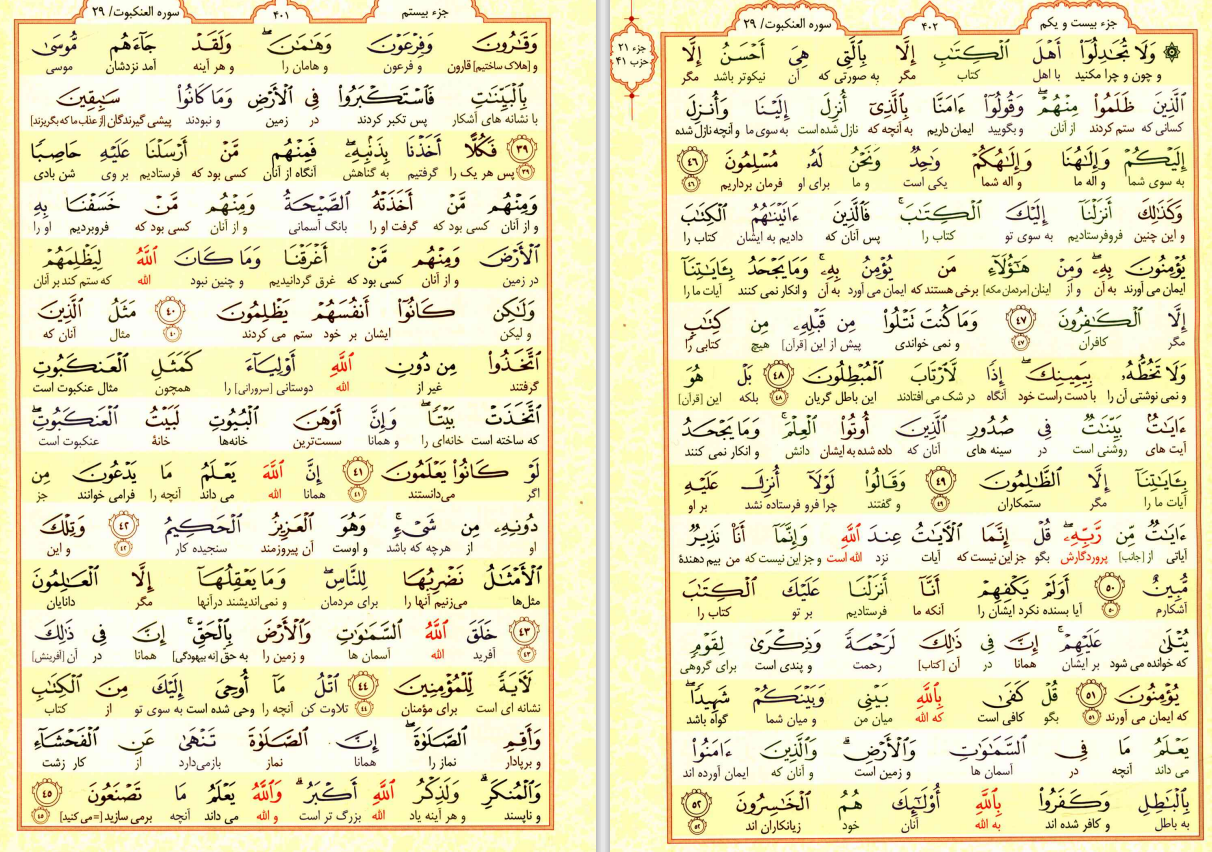 جزء بیستم
۴۰۱
سوره العنكبوت/ ۲۹
وَقَـٰرُونَ وَفِرْعَوْنَ وَهَـٰمَـٰنَ ۖ وَلَقَدْ جَآءَهُم مُّوسَىٰ
و [هلاک ساختیم] قارون و فرعون و هامان را و هر آینه آمد نزدشان موسی
بِالْبَيِّنَـٰتِ فَاسْتَكْبَرُوا۟ فِى الْأَرْضِ وَمَا كَانُوا۟ سَـٰبِقِينَ
با نشانه های آشکار پس تکبر کردند در زمین و نبودند پیشی گیرندگان [از عذاب ما که بگریزند]
﴿٣٩﴾ فَكُلًّا أَخَذْنَا بِذَنۢبِهِۦ ۖ فَمِنْهُم مَّنْ أَرْسَلْنَا عَلَيْهِ حَاصِبًا
۳۹ پس هر یک را گرفتیم به گناهش آنگاه از آنان کسی بود که فرستادیم بر وی شن بادی
وَمِنْهُم مَّنْ أَخَذَتْهُ الصَّيْحَةُ وَمِنْهُم مَّنْ خَسَفْنَا بِهِ
و از آنان کسی بود که گرفت او را بانگ آسمانی و از آنان کسی بود که فروبردیم او را
الْأَرْضَ وَمِنْهُم مَّنْ أَغْرَقْنَا وَمَا كَانَ اللَّهُ لِيَظْلِمَهُمْ
در زمین و از آنان کسی بود که غرق گردانیدیم و چنین نبود الله که ستم کند بر آنان
وَلَـٰكِن كَانُوٓا۟ أَنفُسَهُمْ يَظْلِمُونَ ﴿٤٠﴾ مَثَلُ الَّذِينَ
و لیکن ایشان بر خود ستم می کردند ۴۰ مثال آنان که
اتَّخَذُوا۟ مِن دُونِ اللَّهِ أَوْلِيَآءَ كَمَثَلِ الْعَنكَبُوتِ
گرفتند غیر از الله دوستانی [سرورانی] را همچون مثال عنکبوت است
اتَّخَذَتْ بَيْتًا ۖ وَإِنَّ أَوْهَنَ الْبُيُوتِ لَبَيْتُ الْعَنكَبُوتِ ۖ
که ساخته است خانه‌ای را و همانا سست‌ترین خانه‌ها خانهٔ عنکبوت است
لَوْ كَانُوا۟ يَعْلَمُونَ ﴿٤١﴾ إِنَّ اللَّهَ يَعْلَمُ مَا يَدْعُونَ مِن
اگر می‌دانستند ۴۱ همانا الله می داند آنچه را فرامی خوانند جز
دُونِهِۦ مِن شَىْءٍ ۚ وَهُوَ الْعَزِيزُ الْحَكِيمُ ﴿٤٢﴾ وَتِلْكَ
او از هرچه که باشد و اوست آن پیروزمند سنجیده کار ۴۲ و این
الْأَمْثَـٰلُ نَضْرِبُهَا لِلنَّاسِ ۖ وَمَا يَعْقِلُهَآ إِلَّا الْعَـٰلِمُونَ
مثل‌ها می‌زنیم آنها را برای مردمان و نمی‌اندیشند درآنها مگر دانایان
﴿٤٣﴾ خَلَقَ اللَّهُ السَّمَـٰوَٰتِ وَالْأَرْضَ بِالْحَقِّ ۚ إِنَّ فِى ذَٰلِكَ
۴۳ آفرید الله آسمان ها و زمین را به حق [نه بیهودگی] همانا در آن [آفرینش]
لَـَٔايَةً لِّلْمُؤْمِنِينَ ﴿٤٤﴾ اتْلُ مَآ أُوحِىَ إِلَيْكَ مِنَ الْكِتَـٰبِ
نشانه ای است برای مؤمنان ۴۴ تلاوت کن آنچه را وحی شده است به سوی تو از کتاب
وَأَقِمِ الصَّلَوٰةَ ۖ إِنَّ الصَّلَوٰةَ تَنْهَىٰ عَنِ الْفَحْشَآءِ
و برپادار نماز را همانا نماز بازمی‌دارد از کار زشت
وَالْمُنكَرِ ۗ وَلَذِكْرُ اللَّهِ أَكْبَرُ ۗ وَاللَّهُ يَعْلَمُ مَا تَصْنَعُونَ ﴿٤٥﴾
و ناپسند و هر آینه یاد الله بزرگ تر است و الله می داند آنچه برمی سازید [= می کنید] ۴۵
جزء بیست و یکم
۴۰۲
سوره العنكبوت/ ۲۹
جزء ۲۱
حزب ۴۱
۞ وَلَا تُجَـٰدِلُوٓا۟ أَهْلَ الْكِتَـٰبِ إِلَّا بِالَّتِى هِىَ أَحْسَنُ إِلَّا
و چون و چرا مکنید با اهل کتاب مگر به صورتی که آن نیکوتر باشد مگر
الَّذِينَ ظَلَمُوا۟ مِنْهُمْ ۖ وَقُولُوٓا۟ ءَامَنَّا بِالَّذِىٓ أُنزِلَ إِلَيْنَا وَأُنزِلَ
کسانی که ستم کردند از آنان و بگویید ایمان داریم به آنچه که نازل شده است به سوی ما و آنچه نازل شده
إِلَيْكُمْ وَإِلَـٰهُنَا وَإِلَـٰهُكُمْ وَٰحِدٌ وَنَحْنُ لَهُۥ مُسْلِمُونَ ﴿٤٦﴾
به سوی شما و اله ما و اله شما یکی است و ما برای او فرمان برداریم ۴۶
وَكَذَٰلِكَ أَنزَلْنَآ إِلَيْكَ الْكِتَـٰبَ ۚ فَالَّذِينَ ءَاتَيْنَـٰهُمُ الْكِتَـٰبَ
و این چنین فروفرستادیم به سوی تو کتاب را پس آنان که دادیم به ایشان کتاب را
يُؤْمِنُونَ بِهِۦ ۖ وَمِنْ هَـٰٓؤُلَآءِ مَن يُؤْمِنُ بِهِۦ ۚ وَمَا يَجْحَدُ بِـَٔايَـٰتِنَآ
ایمان می آورند به آن و از اینان [مردمان مکه] برخی هستند که ایمان می آورد به آن و انکار نمی کنند آیات ما را
إِلَّا الْكَـٰفِرُونَ ﴿٤٧﴾ وَمَا كُنتَ تَتْلُوا۟ مِن قَبْلِهِۦ مِن كِتَـٰبٍ
مگر کافران ۴۷ و نمی خواندی پیش از این [قرآن] هیچ کتابی را
وَلَا تَخُطُّهُۥ بِيَمِينِكَ ۖ إِذًا لَّارْتَابَ الْمُبْطِلُونَ ﴿٤٨﴾ بَلْ هُوَ
و نمی نوشتی آن را با دست راست خود آنگاه در شک می افتادند این باطل گریان ۴۸ بلکه این [قرآن]
ءَايَـٰتٌۢ بَيِّنَـٰتٌ فِى صُدُورِ الَّذِينَ أُوتُوا۟ الْعِلْمَ ۚ وَمَا يَجْحَدُ
آیت های روشنی است در سینه های آنان که داده شده به ایشان دانش و انکار نمی کنند
بِـَٔايَـٰتِنَآ إِلَّا الظَّـٰلِمُونَ ﴿٤٩﴾ وَقَالُوا۟ لَوْلَآ أُنزِلَ عَلَيْهِ
آیات ما را مگر ستمکاران ۴۹ و گفتند چرا فرو فرستاده نشد بر او
ءَايَـٰتٌ مِّن رَّبِّهِۦ ۖ قُلْ إِنَّمَا الْـَٔايَـٰتُ عِندَ اللَّهِ وَإِنَّمَآ أَنَا۠ نَذِيرٌ
آیاتی از [جانب] پروردگارش بگو جز این نیست که آیات نزد الله است و جز این نیست که من بیم دهندهٔ
مُّبِينٌ ﴿٥٠﴾ أَوَلَمْ يَكْفِهِمْ أَنَّآ أَنزَلْنَا عَلَيْكَ الْكِتَـٰبَ
آشکارم ۵۰ آیا بسنده نکرد ایشان را آنکه ما فرستادیم بر تو کتاب را
يُتْلَىٰ عَلَيْهِمْ ۚ إِنَّ فِى ذَٰلِكَ لَرَحْمَةً وَذِكْرَىٰ لِقَوْمٍ
که خوانده می شود بر ایشان همانا در آن [کتاب] رحمت و پندی است برای گروهی
يُؤْمِنُونَ ﴿٥١﴾ قُلْ كَفَىٰ بِاللَّهِ بَيْنِى وَبَيْنَكُمْ شَهِيدًا ۖ
که ایمان می آورند ۵۱ بگو کافی است که الله میان من و میان شما گواه باشد
يَعْلَمُ مَا فِى السَّمَـٰوَٰتِ وَالْأَرْضِ ۗ وَالَّذِينَ ءَامَنُوا۟
می داند آنچه در آسمان ها و زمین است و آنان که ایمان آورده اند
بِالْبَـٰطِلِ وَكَفَرُوا۟ بِاللَّهِ أُو۟لَـٰٓئِكَ هُمُ الْخَـٰسِرُونَ ﴿٥٢﴾
به باطل و کافر شده اند به الله آنان خود زیانکاران اند ۵۲